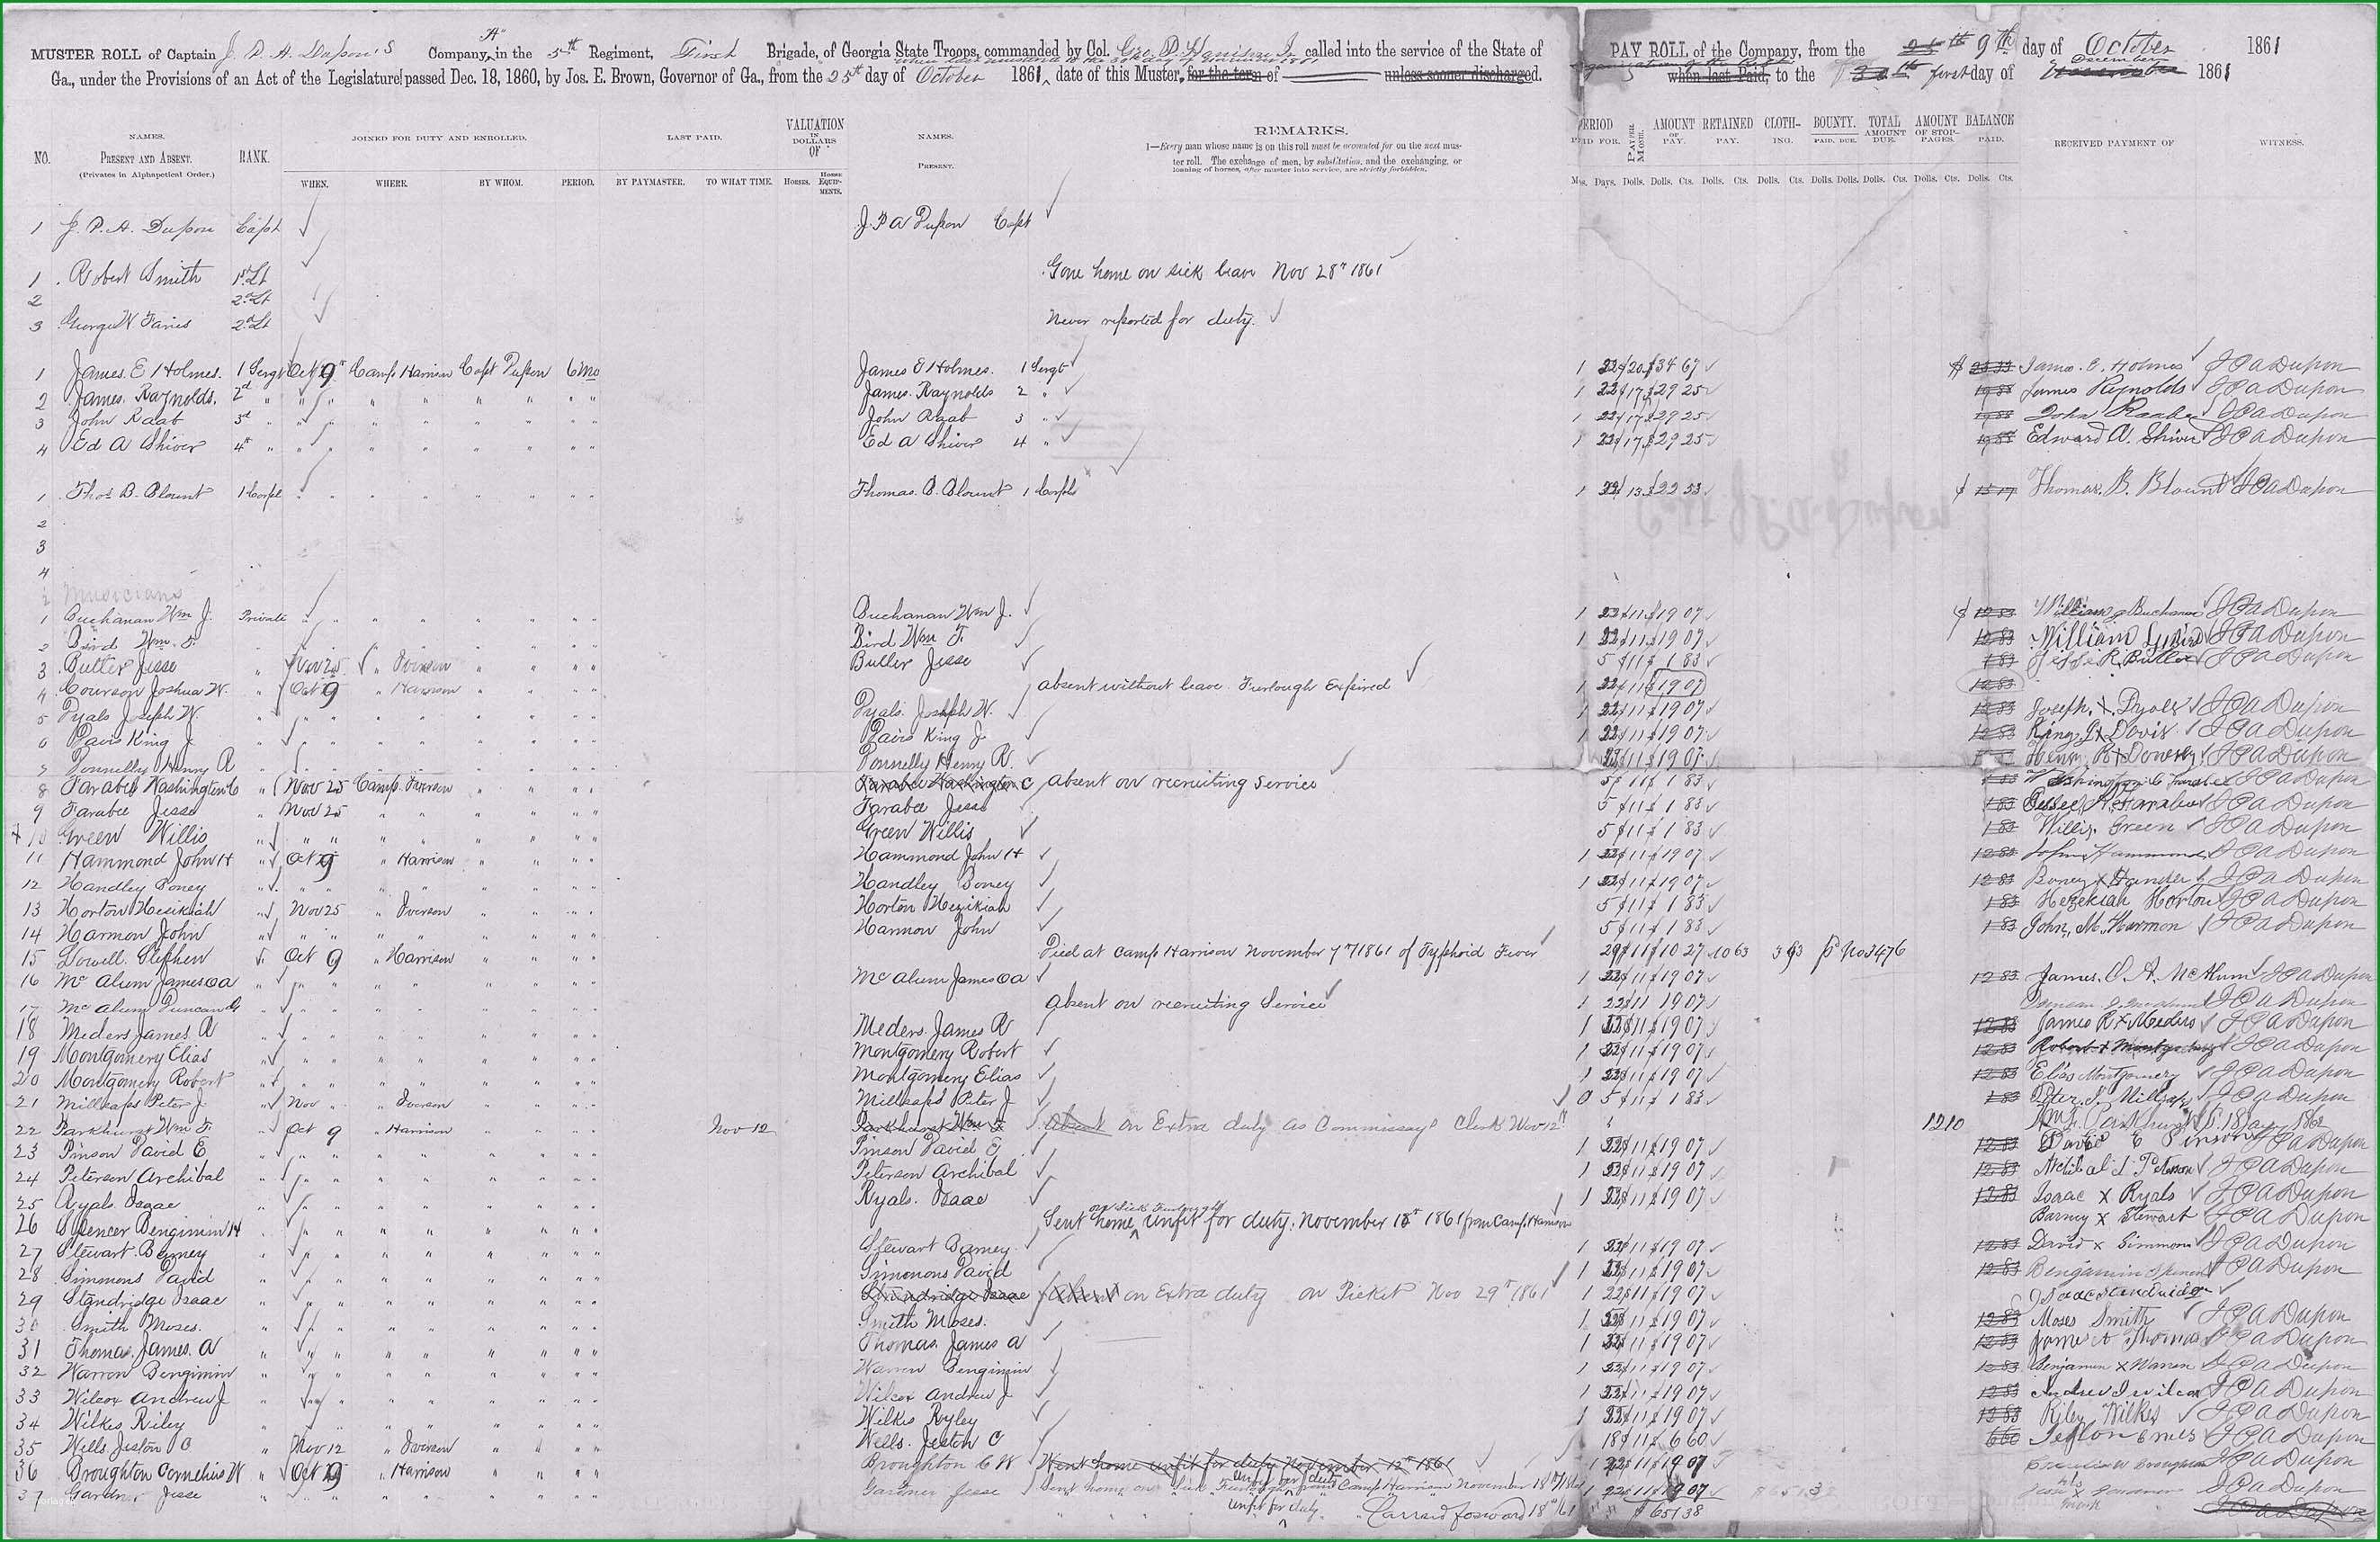 MUSTER ROLL of Captain J. P. A. Dupon's Company, "A" in the 5th Regiment, First Brigade, of Georgia State Troops, commanded by Col. Geo. P. Harrison Jr called into the service of the State of
Ga., under the Provisions of an Act of the Legislature passed Dec. 18, 1860, by Jos. E. Brown, Governor of Ga., from the 25th day of October 1861, date of this Muster, for the term of unless sooner discharged.
PAY ROLL of the Company, from the 25th 9th day of October 1861
when last Paid, to the 30th first day of December 1861
NO. NAMES. PRESENT AND ABSENT. (Privates in Alphapetical Order.) RANK. JOINED FOR DUTY AND ENROLLED. WHEN. WHERE. BY WHOM. PERIOD. LAST PAID. BY PAYMASTER. TO WHAT TIME. VALUATION IN DOLLARS OF HORSES. HORSE EQUIP-MENTS. NAMES. PRESENT.
REMARKS.
1—Every man whose name is on this roll must be accounted for on the next mus-
ter roll. The exchange of men, by substitution, and the exchanging, or
loaning of horses, after muster into service, are strictly forbidden.
PERIOD PAID FOR. PAY PER MONTH. AMOUNT OF PAY. RETAINED PAY. CLOTH-ING. BOUNTY. PAID. DUE. TOTAL AMOUNT DUE. AMOUNT OF STOP-PAGES. BALANCE PAID. RECEIVED PAYMENT OF WITNESS.
Mos. Days. Dolls. Dolls. Cts. Dolls. Cts. Dolls. Cts. Dolls. Dolls. Dolls. Cts. Dolls. Cts. Dolls. Cts.
1 J. P. A. Dupon Capt J P A Dupon Capt
1 Robert Smith 1st Lt Gone home on sick leave Nov 28th 1861
2 2d Lt
3 George W Faries 2d Lt Never reported for duty.
1 James. E Holmes. 1 Sergt Oct 9th Camp Harrison Capt Dupon 6 mo James E Holmes. 1 Sergt 1 22 $20 $34 67 $ 23 33 James. E. Holmes J P A Dupon
2 James. Raynolds. 2d " " " " " " " James. Raynolds 2 " 1 22 $17 $29 25 James Reynolds J P A Dupon
3 John Raab 3d " " " " " " " John Raab 3 " 1 22 $17 $29 25 John Raabe J P A Dupon
4 Ed A Shiver 4th " " " " " " " Ed A Shiver 4 " 1 22 $17 $29 25 Edward A. Shiver J P A Dupon
1 Thos B. Blount 1 Corpl " " " " " " Thomas. B. Blount 1 Corpl 1 22 $13 $22 53 $ 15 17 Thomas. B. Blount J P A Dupon
2
3
4
Musicians
1 Buchanan Wm J. Private " " " " " " Buchanan Wm J. 1 22 $11 $19 07 $ 12 83 William J Buchanan J P A Dupon
2 Bird Wm. F. " " " " " " Bird Wm F. 1 22 $11 $19 07 12 83 William J P A Dupon
3 Butler Jesse " Nov 25 " Iverson " " " " Butler Jesse 5 $11 $ 1 83 1 83 Jesse R. Butler J P A Dupon
4 Courson Joshua W. " Oct 9 " Harrison " " " " absent without leave. Furlough Expired 1 22 $11 $19 07 12 83
5 Dyals Joseph W. " " " " " " " Dyals. Joseph W. 1 22 $11 $19 07 12 83 Joseph. X. Dyals J P A Dupon
6 Davis King J. " " " " " " " Davis King J. 1 22 $11 $19 07 12 83 King J X Davis J P A Dupon
7 Donnelly Henry R " " " " " " " Donnelly Henry R. $11 $19 07 Henry R X J P A Dupon
8 Farabee Washington C " Nov 25 Camp. Iverson " " " " Farabee Washington C absent on recruiting Service 5 $11 $ 1 83 1 83 Washington C Farabee J P A Dupon
9 Farabee Jesse " Nov 25 " " " " " Farabee Jesse 5 $11 $ 1 83 1 83 Jesse Farabee J P A Dupon
10 Green Willis " " " " " " " Green Willis 5 $11 $ 1 83 1 83 Willis Green J P A Dupon
11 Hammond John H " Oct 9 " Harrison " " " " Hammond John H 1 22 $11 $19 07 12 83 John Hammond J P A Dupon
12 Handley Boney " " " " " " " Handley Boney 1 22 $11 $19 07 12 83 Boney X Handley J P A Dupon
13 Horton Hesikiah " Nov 25 " Iverson " " " " Horton Hezikiah 5 $11 $ 1 83 1 83 Hezekiah Horton J P A Dupon
14 Harmon John " " " " " " " Harmon John 5 $11 $ 1 83 1 83 John, M. Harmon J P A Dupon
15 Dowell. Stephen " Oct 9 " Harrison " " " " Died at Camp Harrison November 7th 1861 of Typhoid Fever 29 $11 $10 27 10 63 No 3476
16 Mc Alum James O A " " " " " " " Mc Alum James O A 1 22 $11 $19 07 12 83 James. O. A. McAlum J P A Dupon
17 Mc Alum Duncan G " " " " " " " absent on recruiting Service 1 22 $11 19 07 Duncan J P A Dupon
18 Meders James. R " " " " " " " Meders. James R 1 22 $11 $19 07 12 83 James R X Meders J P A Dupon
19 Montgomery Elias " " " " " " " Montgomery Robert 1 22 $11 $19 07 12 83 Robert X Montgomery J P A Dupon
20 Montgomery Robert " " " " " " " Montgomery Elias 1 22 $11 $19 07 12 83 Elias Montgomery J P A Dupon
21 Millsaps Peter J. " Nov " " Iverson " " " " Millsaps Peter J 0 5 $11 $ 1 83 1 83 Peter. J. Millsaps J P A Dupon
22 Parkhurst Wm F. " Oct 9 " Harrison " " " " Nov 12 Parkhurst Wm F Absent on Extra duty as Commissary Clerk Nov 12th 12 10 Wm F. Parkhurst 18 Jany 1862
23 Pinson David E " " " " " " " Pinson David E 1 22 $11 $19 07 12 83 David E Pinson J P A Dupon
24 Peterson Archibal " " " " " " " Peterson Archibal 1 22 $11 $19 07 12 83 Archibald Peterson J P A Dupon
25 Ryals Isaac " " " " " " " Ryals. Isaac 1 22 $11 $19 07 12 83 Isaac X Ryals J P A Dupon
26 Spencer Bengimin H " " " " " " " Sent home on Sick Furlough unfit for duty. November 18th 1861 from Camp Harrison Barney X Stewart J P A Dupon
27 Stewart. Barney " " " " " " " Stewart Barney. 1 22 $11 $19 07 12 83 David X Simmons J P A Dupon
28 Simmons David " " " " " " " Simmons David 1 22 $11 $19 07 12 83 Benjamin Spencer J P A Dupon
29 Standridge Isaac " " " " " " " Standridge Isaac Absent on Extra duty on Picket Nov 29th 1861 1 22 $11 $19 07 Isaac Standridge
30 Smith Moses. " " " " " " " Smith Moses. 1 22 $11 $19 07 12 83 Moses Smith J P A Dupon
31 Thomas. James. A " " " " " " " Thomas. James A 1 22 $11 $19 07 12 83 James A Thomas J P A Dupon
32 Warren Bengimin " " " " " " " Warren Bengimin 1 22 $11 $19 07 12 83 Benjamin X Warren J P A Dupon
33 Wilcox Andrew J " " " " " " " Wilcox Andrew J. 1 22 $11 $19 07 12 83 Andrew J Wilcox J P A Dupon
34 Wilkes Riley " " " " " " " Wilkes Ryley 1 22 $11 $19 07 12 83 Riley Wilkes J P A Dupon
35 Wells. Jeston C " Nov 12 " Iverson " " " " Wells. Jeston C 18 $11 $ 6 60 6 60 J P A Dupon
36 Broughton Cornelius W " Oct 9 " Harrison " " " " Broughton C W Went home unfit for duty November 12th 1861 1 22 $11 $19 07 Cornelius W Broughton J P A Dupon
37 Gardner Jesse " " " " " " " Gardner Jesse Sent home on Sick Furlough unfit for duty from Camp Harrison November 18th 1861 1 22 $11 $19 07 Jesse X Gardner his mark J P A Dupon
unfit for duty. Carried forward 18th/61 $ 651 38 J P A Dupon